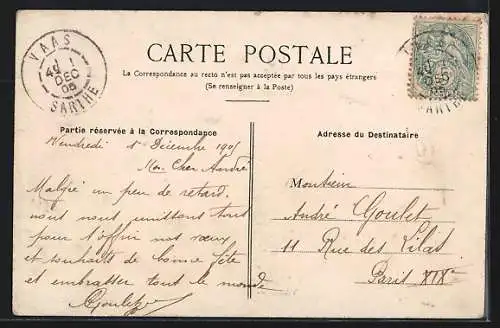 VAAS
4 1
DEC
05
SARTHE
CARTE POSTALE
La Correspondance au recto n'est pas acceptée par tous les pays étrangers
(Se renseigner à la Poste)
Partie réservée à la Correspondance
Vendredi 1er Décembre 1905
Mon Cher André
Malgré un peu de retard,
nous nous unissons tous
pour t'offrir nos vœux
et souhaits de bonne fête
et embrasser tout le monde
Goulet
Adresse du Destinataire
Monsieur
André Goulet
11 Rue des Lilas
Paris XIXe